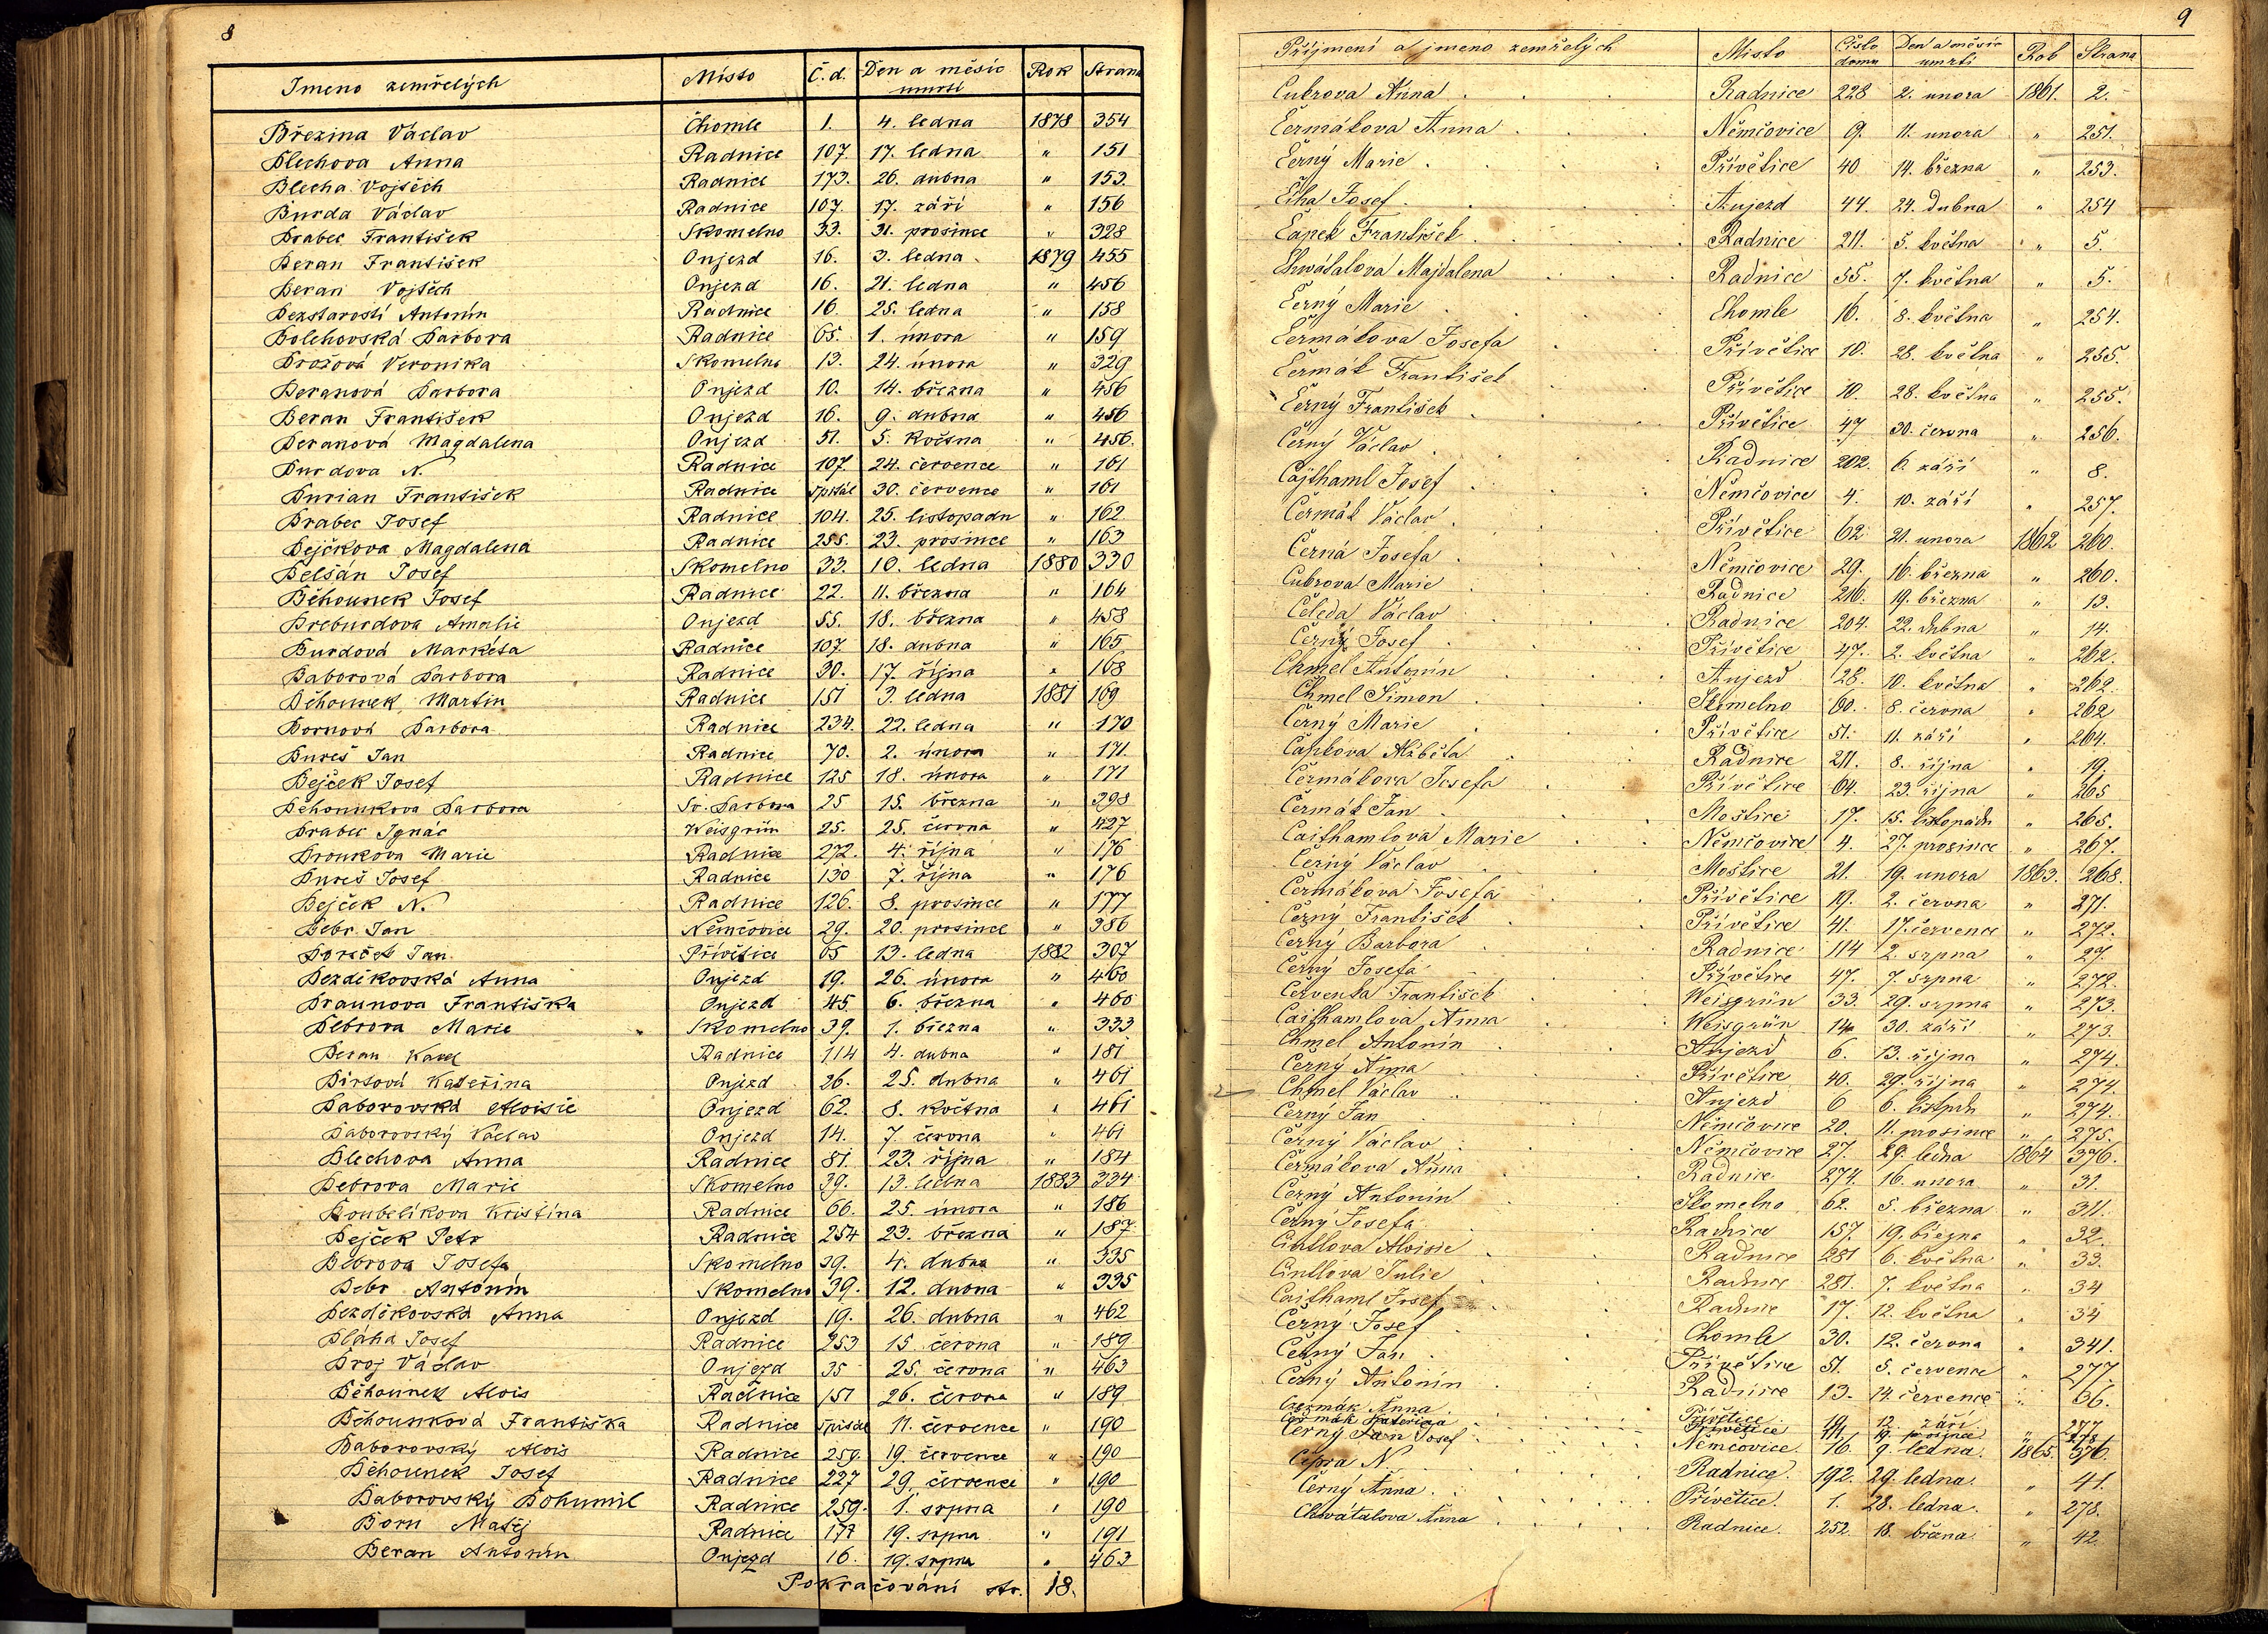 8
Jmeno zemřelých Místo Č.d. Den a měsíc úmrtí Rok Strana
Březina Václav Chomle 1. 4. ledna 1878 354
Blechova Anna Radnice 107. 17. ledna " 151
Blecha Vojtěch Radnice 173. 26. dubna " 153.
Burda Václav Radnice 107. 17. září " 156
Brabec František Skomelno 33. 31. prosince " 328
Beran František Onjezd 16. 3. ledna 1879 455
Beran Vojtěch Onjezd 16. 21. ledna " 456
Bezstarosti Antonín Radnice 16. 25. ledna " 158
Bolehovská Barbora Radnice 65. 1. února " 159
Brožová Veronika Skomelno 13. 24. února " 329
Beranová Barbora Onjezd 10. 14. března " 456
Beran František Onjezd 16. 9. dubna " 456
Beranová Magdalena Onjezd 51. 5. května " 456.
Burdova N. Radnice 107. 24. července " 161
Burian František Radnice Špitál 30. července " 161
Brabec Josef Radnice 104. 25. listopadu " 162
Bejčkova Magdalena Radnice 255. 23. prosince " 163
Belšán Josef Skomelno 33. 10. ledna 1880 330
Běhounek Josef Radnice 22. 11. března " 164
Breburdova Amalie Onjezd 55. 18. března " 458
Burdová Markéta Radnice 107. 18. dubna " 165
Baborová Barbora Radnice 30. 17. října " 168
Běhounek Martin Radnice 151 3. ledna 1881 169
Bornová Barbora Radnice 234. 22. ledna " 170
Bureš Jan Radnice 70. 2. února " 171.
Bejček Josef Radnice 125 18. února " 171
Běhounkova Barbora Sv. Barbora 25 15. března " 398
Brabec Ignác Weisgrün 25. 25. června " 427
Broukova Marie Radnice 272. 4. října " 176
Bureš Josef Radnice 130 7. října " 176
Bejček N. Radnice 126. 8. prosince " 177
Bebr Jan Němčovice 29. 20. prosince " 386
Boreček Jan Přívětice 65 13. ledna 1882 307
Bezdíkovská Anna Onjezd 19. 26. února " 460
Braunova Františka Onjezd 45. 6. března " 460
Bebrova Marie Skomelno 39. 1. března " 333
Beran Karel Radnice 114 4. dubna " 181
Bírtová Kateřina Onjezd 26. 25. dubna " 461
Baborovská Aloisie Onjezd 62. 8. května " 461
Baborovský Václav Onjezd 14. 7. června " 461
Blechova Anna Radnice 81. 23. října " 184
Bebrova Marie Skomelno 39. 13. ledna 1883 334
Boubelíkova Kristina Radnice 66. 25. února " 186
Bejček Petr Radnice 254 23. března " 187.
Bebrova Josefa Skomelno 39. 4. dubna " 335
Bebr Antonín Skomelno 39. 12. dubna " 335
Bezdíkovská Anna Onjezd 19. 26. dubna " 462
Bláha Josef Radnice 253 15 června " 189
Broj Václav Onjezd 35 25. června " 463
Běhounek Alois Radnice 151 26. června " 189
Běhounková Františka Radnice Špitál 11. července " 190
Baborovský Alois Radnice 259. 19. července " 190
Běhounek Josef Radnice 227 29. července " 190
Baborovský Bohumil Radnice 259. 1. srpna " 190
Born Matěj Radnice 177 19. srpna " 191
Beran Antonín Onjezd 16. 19. srpna " 463
Pokračování str. 18.
9
Příjmení a jmeno zemřelých Místo Číslo domu Den a měsíc umrtí Rok Strana
Cubrova Anna Radnice 228 2. unora 1861. 2.
Čermákova Anna Němčovice 9. 11. unora " 251.
Černý Marie Přívětice 40 14. března " 253.
Číha Josef Aujezd 44. 24. dubna " 254
Čapek František Radnice 211. 5. května " 5.
Chwátalova Majdalena Radnice 35. 7. května " 5.
Černý Marie Chomle 16. 8. května " 254.
Čermákova Josefa Přívětice 10. 28. května " 255.
Čermák František Přívětice 10. 28. května " 255.
Černý František Přívětice 47 30. června " 256.
Černý Václav Radnice 202. 6. září " 8.
Cajthaml Josef Němčovice 4. 10. září " 257.
Čermák Václav Přívětice 62. 21. unora 1862 260.
Černá Josefa Němčovice 29. 16. března " 260.
Cubrova Marie Radnice 216. 19. března " 13.
Čeleda Václav Radnice 204. 22. dubna " 14.
Černý Josef Přívětice 47. 2. května " 262.
Chmel Antonín Aujezd 28. 10. května " 262.
Chmel Šimon Skomelno 60. 8. června " 262
Černý Marie Přívětice 51. 11. září " 264.
Čapkova Alžběta Radnice 211. 8. října " 19.
Čermákova Josefa Přívětice 64. 23. října " 265
Čermák Jan Moštice 17. 15. listopadu " 265.
Caithamlova Marie Němčovice 4. 27. prosince " 267.
Černý Václav Moštice 21. 19. unora 1863. 268.
Čermákova Josefa Přívětice 19. 2. června " 271.
Černý František Přívětice 41. 17. července " 272.
Černý Barbora Radnice 114 2. srpna " 27.
Černý Josefa Přívětice 47. 7. srpna " 272.
Červenka František Weisgrün 33. 29. srpna " 273.
Caithamlova Anna Weisgrün 14. 30. září " 273.
Chmel Antonín Aujezd 6. 13. října " 274.
Černý Anna Přívětice 46. 29. října " 274.
Chmel Václav Aujezd 6 6. listpdu " 274.
Černý Jan Němčovice 20. 11. prosince " 275.
Černý Václav Němčovice 27. 29. ledna 1864 376.
Čermákova Anna Radnice 274. 16. unora " 31.
Černý Antonín Skomelno 62. 5. března " 311.
Černý Josefa Radnice 157. 19. března " 32.
Cintlova Aloisie Radnice 281 6. května " 33.
Cintlova Julie Radnice 281. 7. května " 34
Caithaml Josef Radnice 17. 12. května " 34
Černý Josef Chomle 30. 12. června " 341.
Černý Jan Přívětice 51. 5. července " 277.
Černý Antonín Radnice 13. 14. července " 36.
Čermák Anna Přívětice 19. 12. září " 277
Čermák Kateřina Přívětice 19. října " 278
Černý Jan Josef Němčovice. 16. 9. ledna. 1865. 376.
Cipra N. Radnice. 192. 29. ledna. " 41.
Černý Anna Přívětice. 1. 28. ledna. " 278.
Chwátalova Anna Radnice. 252. 18. března " 42.